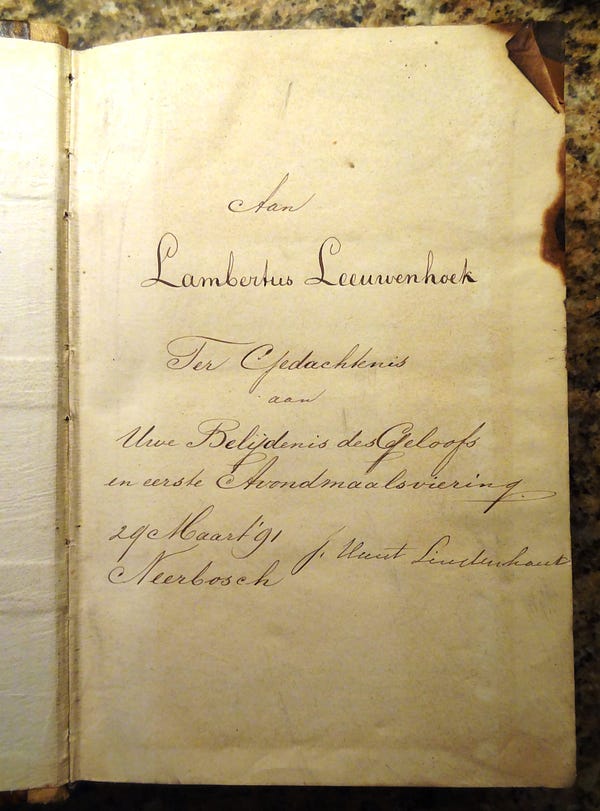 Aan
Lambertus Leeuwenhoek
Ter Gedachtenis
aan
Uwe Belijdenis des Geloofs
en eerste Avondmaalsviering
29 Maart '91
Neerbosch
J.